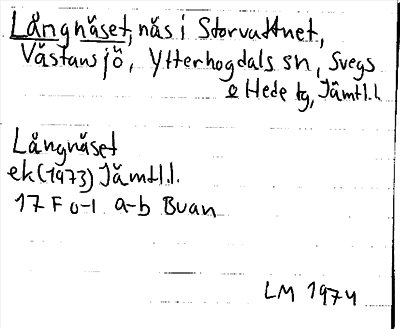 Långnäset, näs i Storvattnet,
Västansjö, Ytterhogdals sn, Svegs
o Hede tg, Jämtl.l.
Långnäset
ek (1973) Jämtl.l.
17 F 0-1 a-b Buan
LM 1974